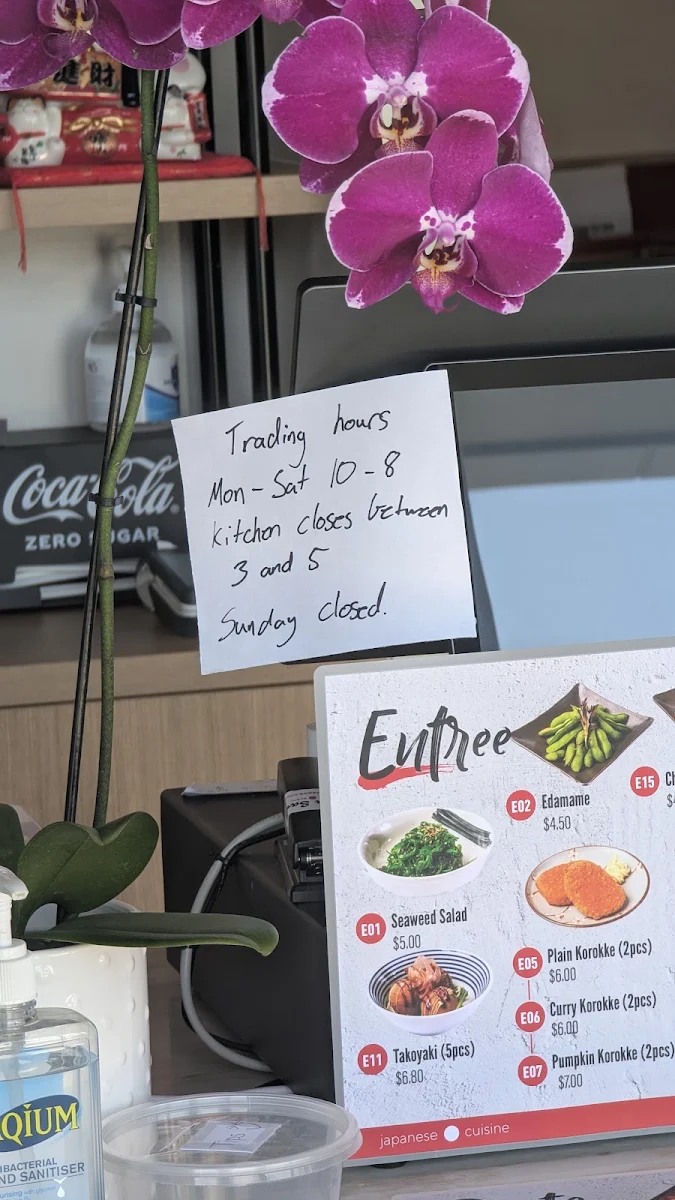 進財
Trading hours
Mon-Sat 10-8
kitchen closes between
3 and 5
Sunday closed.
Coca-Cola
ZERO SUGAR
Entree
E02 Edamame
$4.50
E15
E01 Seaweed Salad
$5.00
E05 Plain Korokke (2pcs)
$6.00
E06 Curry Korokke (2pcs)
$6.00
E11 Takoyaki (5pcs)
$6.80
E07 Pumpkin Korokke (2pcs)
$7.00
japanese cuisine
QIUM
BACTERIAL
ND SANITISER